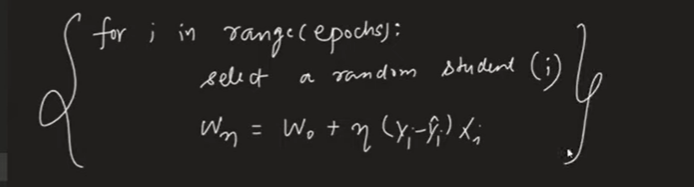 for i in range(epochs):
select a random student (i)
Wn = Wo + η (Yi-Ŷi) Xi